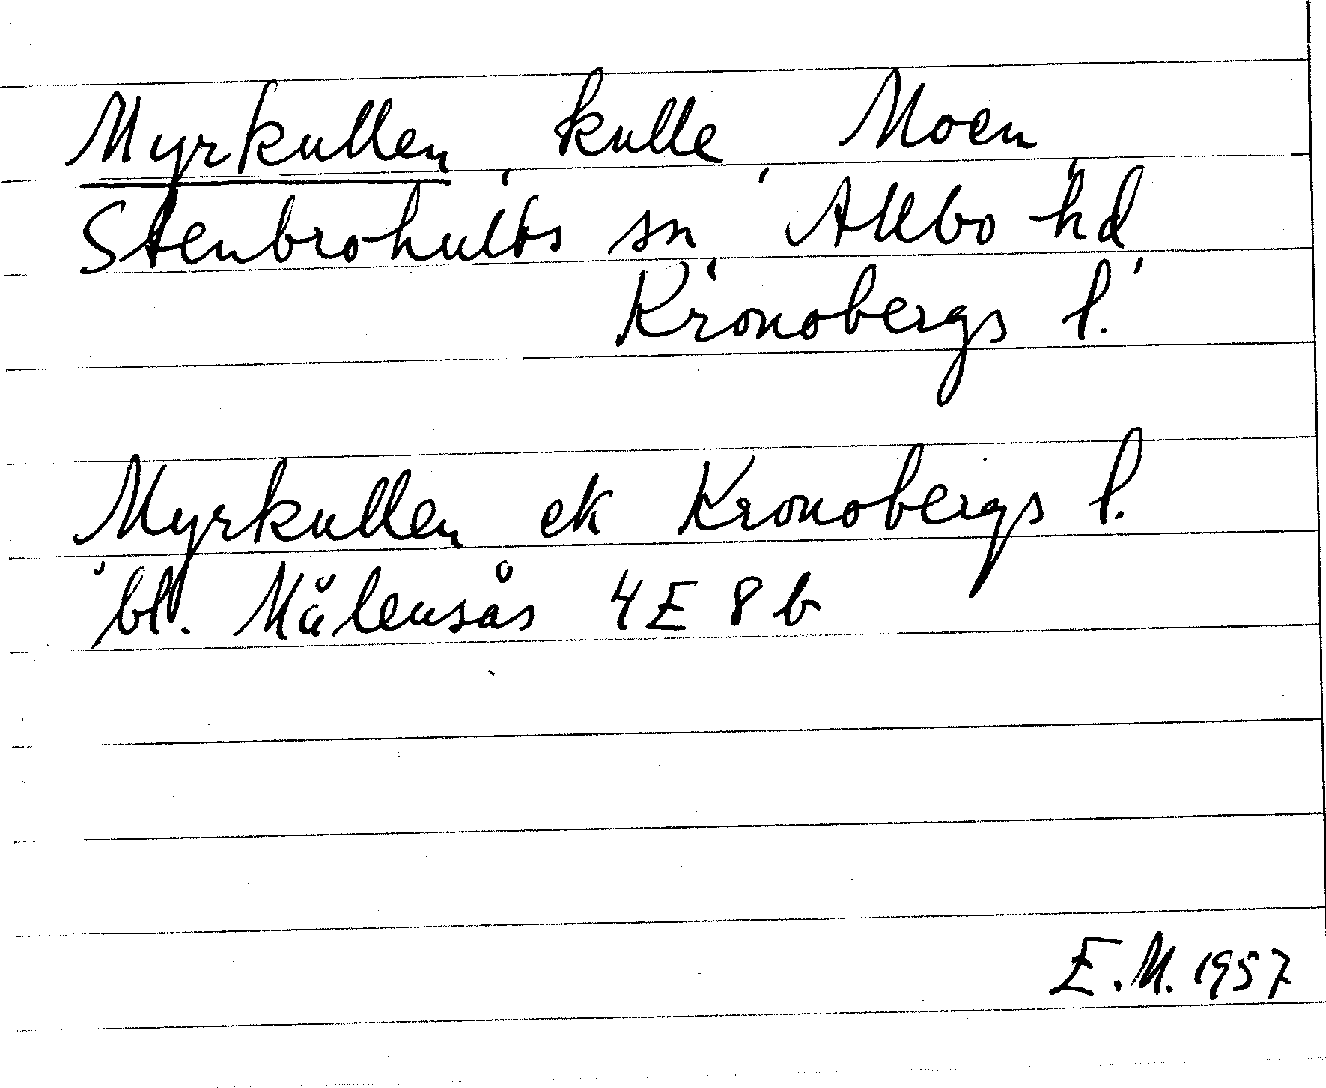 Myrkullen, kulle, Moen,
Stenbrohults sn, Allbo hd,
Kronobergs l.
Myrkullen ek Kronobergs l.
bl. Målensås 4E 8b
E.M. 1957